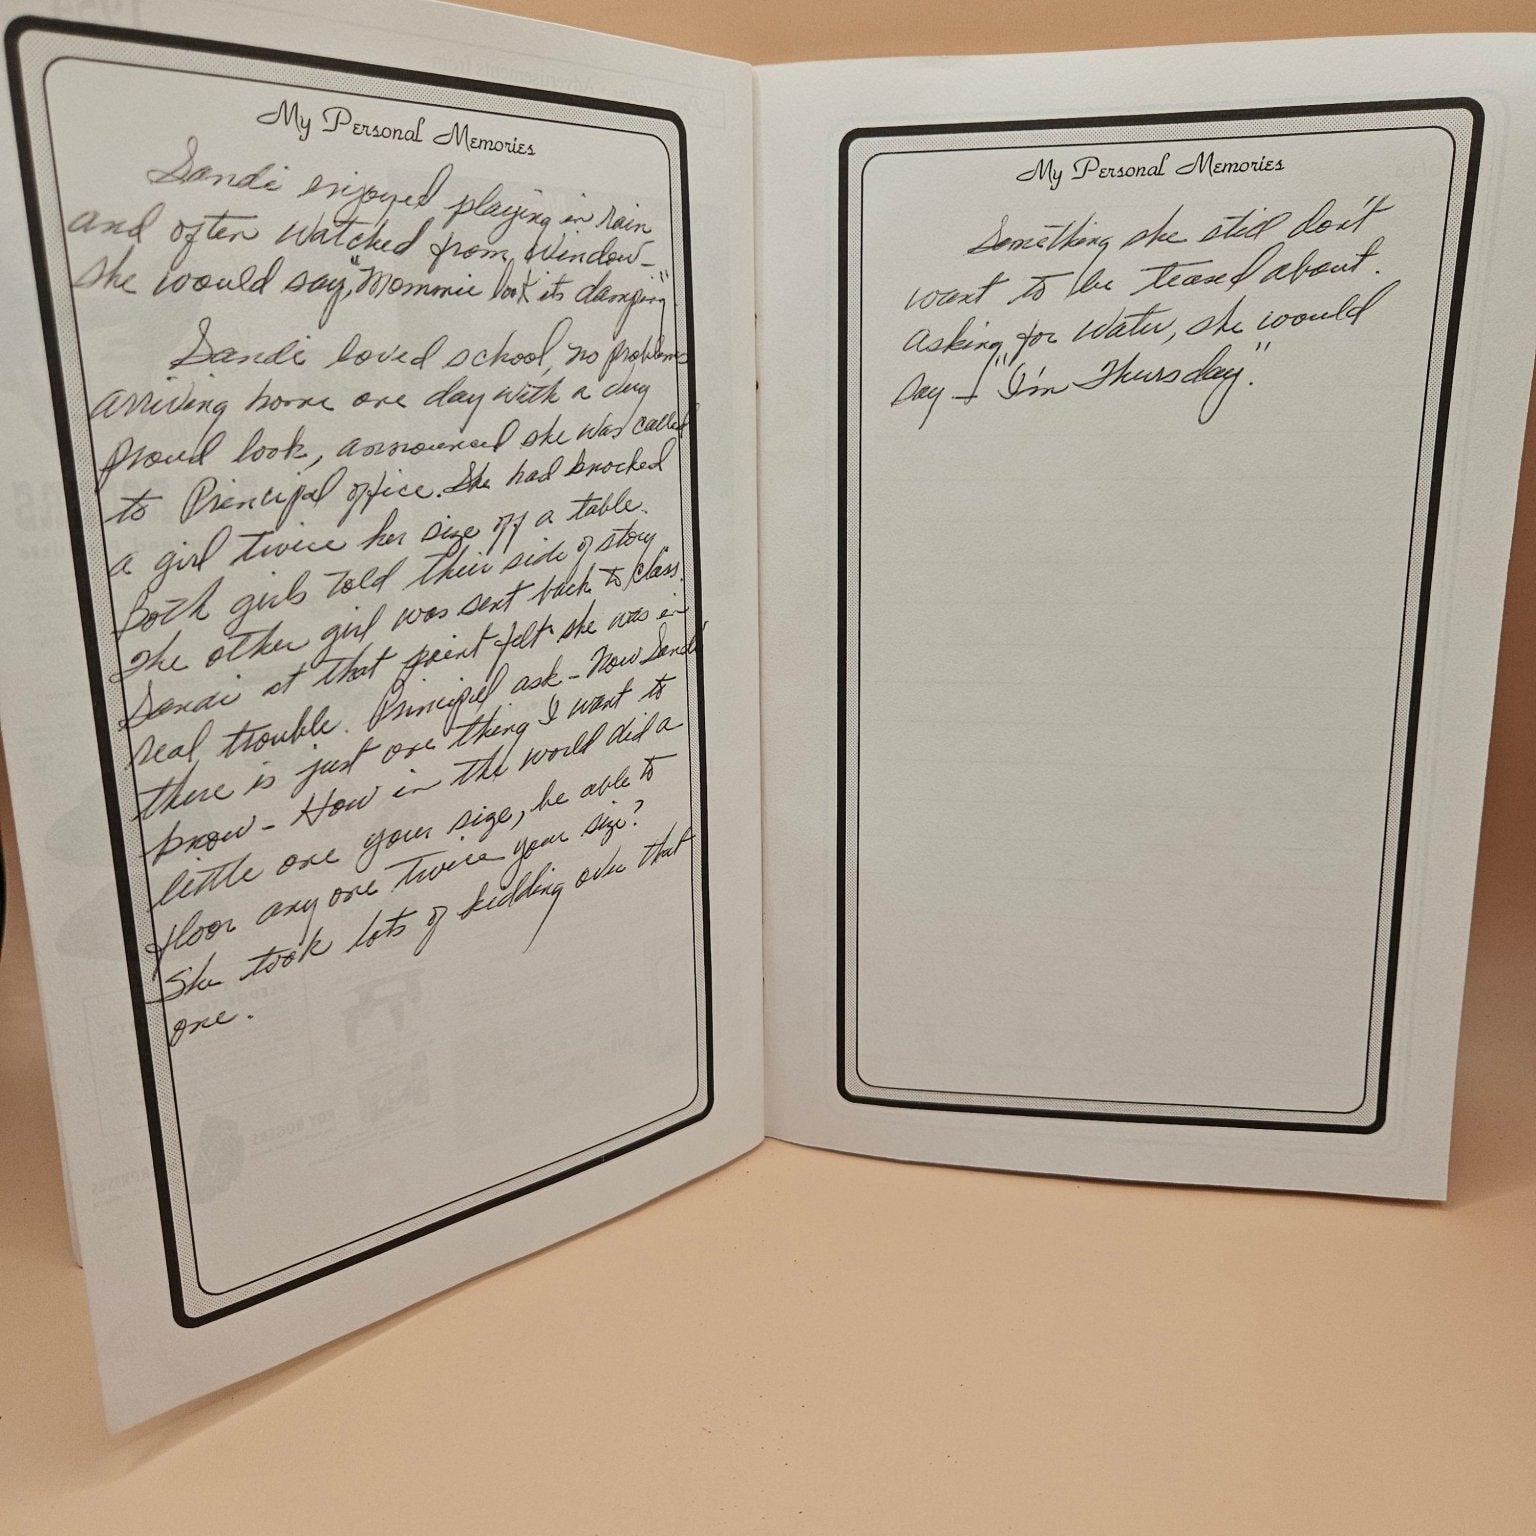 My Personal Memories
Sandi enjoyed playing in rain
and often watched from window -
she would say, "Mommie look its damping"
Sandi loved school, no problems
arriving home one day with a
proud look, announced she was called
to Principal office. She had knocked
a girl twice her size off a table.
Both girls told their side of story
The other girl was sent back to class.
Sandi at that point felt she was in
real trouble. Principal ask - Now Sandi
there is just one thing I want to
know - How in the world did a
little one your size, be able to
floor any one twice your size?
She took lots of kidding over that
one.
My Personal Memories
Something she still don't
want to be teased about.
Asking for water, she would
say - "I'm Thursday."